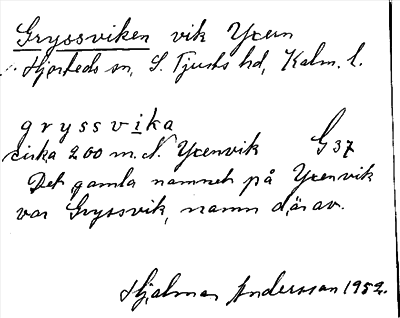 Gryssviken vik Yxern
Hjorteds sn, S. Tjusts hd, Kalm. l.
gryssvika
cirka 200 m. N. Yxenvik G37
Det gamla namnet på Yxenvik
var Gryssvik, namn därav.
Hjalmar Andersson 1952.